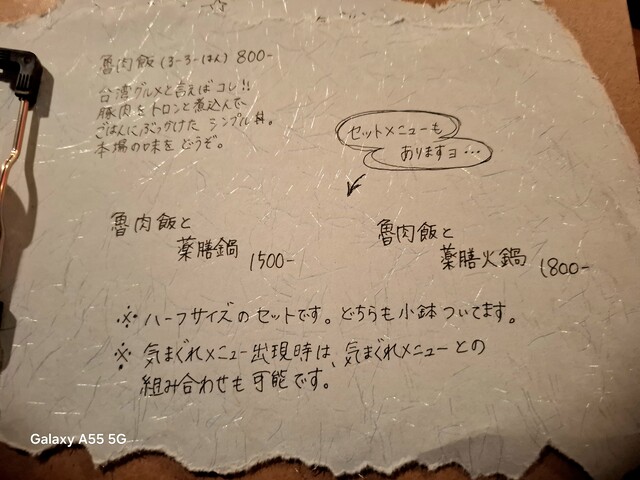 魯肉飯 (ろーろーはん) 800-
台湾グルメと言えばコレ!!
豚肉をトロンと煮込んで、
ごはんにぶっかけた シンプル丼。
本場の味を どうぞ。
セットメニューも
ありますヨ…
魯肉飯と
薬膳鍋 1500-
魯肉飯と
薬膳火鍋 1800-
※ ハーフサイズのセットです。どちらも小鉢ついてます。
※ 気まぐれメニュー出現時は、気まぐれメニューとの
組み合わせも可能です。
Galaxy A55 5G